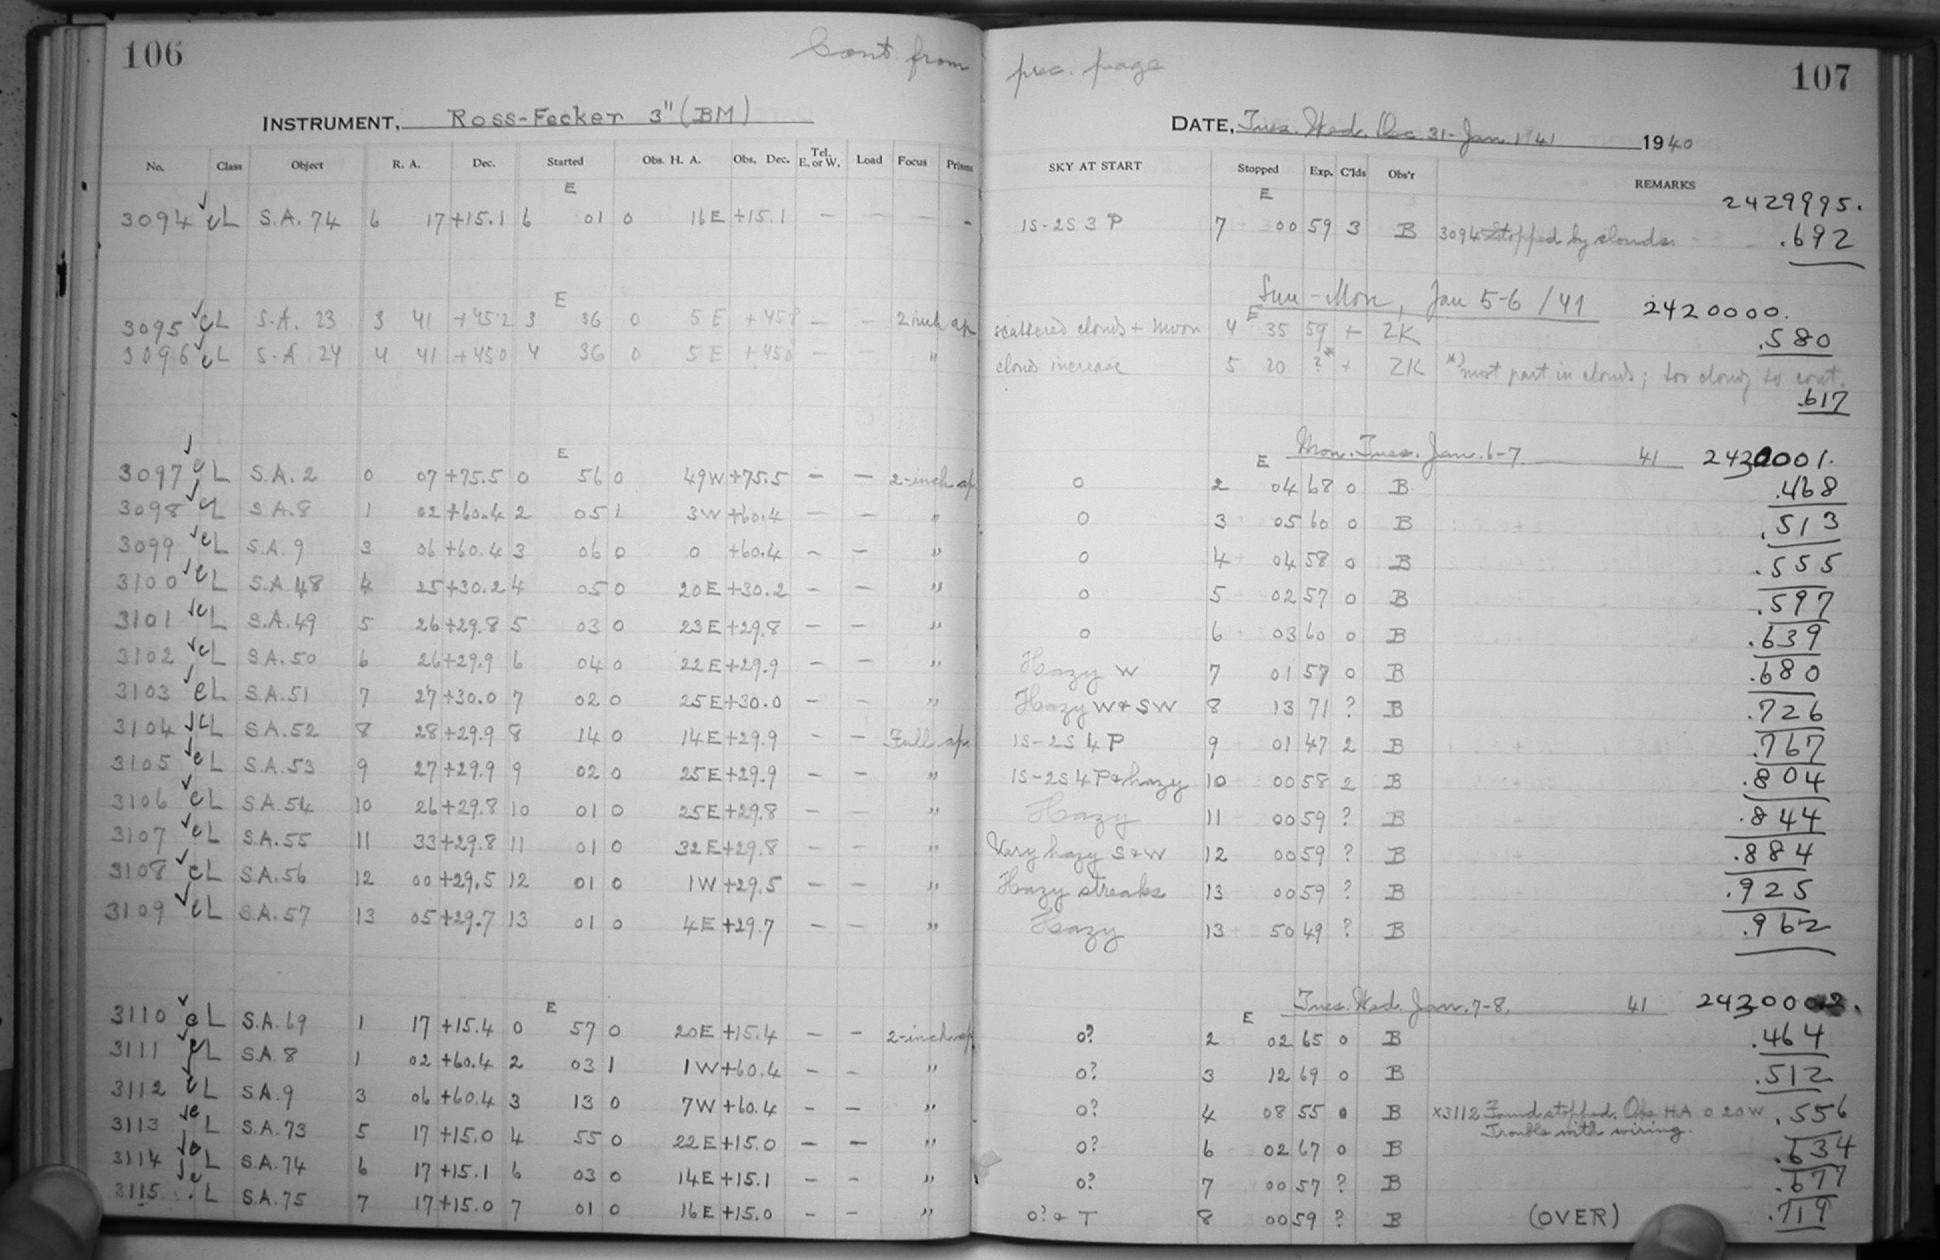 106
Cont. from
INSTRUMENT, Ross-Fecker 3" (BM)
No. Class Object R. A. Dec. Started Obs. H. A. Obs. Dec. Tel. E. or W. Load Focus Prisms
E
3094 ✓ eL S.A. 74 6 17 +15.1 6 01 0 16E +15.1 – – – –
E
3095 ✓ eL S.A. 23 3 41 +45.2 3 36 0 5E – – 2 inch ap
3096 ✓ eL S.A 24 4 41 +45.0 4 36 0 5E +45.0 – – "
E
3097 ✓ eL S.A. 2 0 07 +75.5 0 56 0 49W +75.5 – – 2-inch ap.
3098 ✓ eL S.A. 8 1 02 +60.4 2 05 1 3W +60.4 – – "
3099 ✓ eL S.A. 9 3 06 +60.4 3 06 0 0 +60.4 – – "
3100 ✓ eL S.A. 48 4 25 +30.2 4 05 0 20E +30.2 – – "
3101 ✓ eL S.A. 49 5 26 +29.8 5 03 0 23E +29.8 – – "
3102 ✓ eL S.A. 50 6 26 +29.9 6 04 0 22E +29.9 – – "
3103 ✓ eL S.A. 51 7 27 +30.0 7 02 0 25E +30.0 – – "
3104 ✓ eL S.A. 52 8 28 +29.9 8 14 0 14E +29.9 – – Full ap.
3105 ✓ eL S.A. 53 9 27 +29.9 9 02 0 25E +29.9 – – "
3106 ✓ eL S.A. 54 10 26 +29.8 10 01 0 25E +29.8 – – "
3107 ✓ eL S.A. 55 11 33 +29.8 11 01 0 32E +29.8 – – "
3108 ✓ eL S.A. 56 12 00 +29.5 12 01 0 1W +29.5 – – "
3109 ✓ eL S.A. 57 13 05 +29.7 13 01 0 4E +29.7 – – "
E
3110 ✓ eL S.A. 69 1 17 +15.4 0 57 0 20E +15.4 – – 2-inch ap
3111 ✓ eL S.A. 8 1 02 +60.4 2 03 1 1W +60.4 – – "
3112 ✓ eL S.A. 9 3 06 +60.4 3 13 0 7W +60.4 – – "
3113 ✓ eL S.A. 73 5 17 +15.0 4 55 0 22E +15.0 – – "
3114 ✓ eL S.A. 74 6 17 +15.1 6 03 0 14E +15.1 – – "
3115 ✓ eL S.A. 75 7 17 +15.0 7 01 0 16E +15.0 – – "
prec. page
107
DATE, Tues. Wed. Dec. 31-Jan. 1 '41 1940
SKY AT START Stopped Exp. C'lds Obs'r REMARKS
E
2429995.
1S-2S 3 P 7 00 59 3 B 3094 Stopped by clouds. .692
Sun-Mon, Jan 5-6 /41 2420000.
E
scattered clouds + moon 4 35 59 + ZK .580
clouds increase 5 20 ?* + ZK *) most part in clouds; too cloudy to cont.
.617
E Mon. Tues. Jan. 6-7 41 2430001.
0 2 04 68 0 B .468
0 3 05 60 0 B .513
0 4 04 58 0 B .555
0 5 02 57 0 B .597
0 6 03 60 0 B .639
Hazy W 7 01 57 0 B .680
Hazy W + SW 8 13 71 ? B .726
1S-2S 4 P 9 01 47 2 B .767
1S-2S 4 P + hazy 10 00 58 2 B .804
Hazy 11 00 59 ? B .844
Very hazy S + W 12 00 59 ? B .884
Hazy streaks 13 00 59 ? B .925
Hazy 13 50 49 ? B .962
E Tues. Wed. Jan. 7-8. 41 2430002.
0? 2 02 65 0 B .464
0? 3 12 69 0 B .512
0? 4 08 55 0 B x3112 Found stopped. Obs. H.A 0 20W .556
Trouble with wiring.
0? 6 02 67 0 B .634
0? 7 00 57 ? B .677
0? + T 8 00 59 ? B (OVER) .719